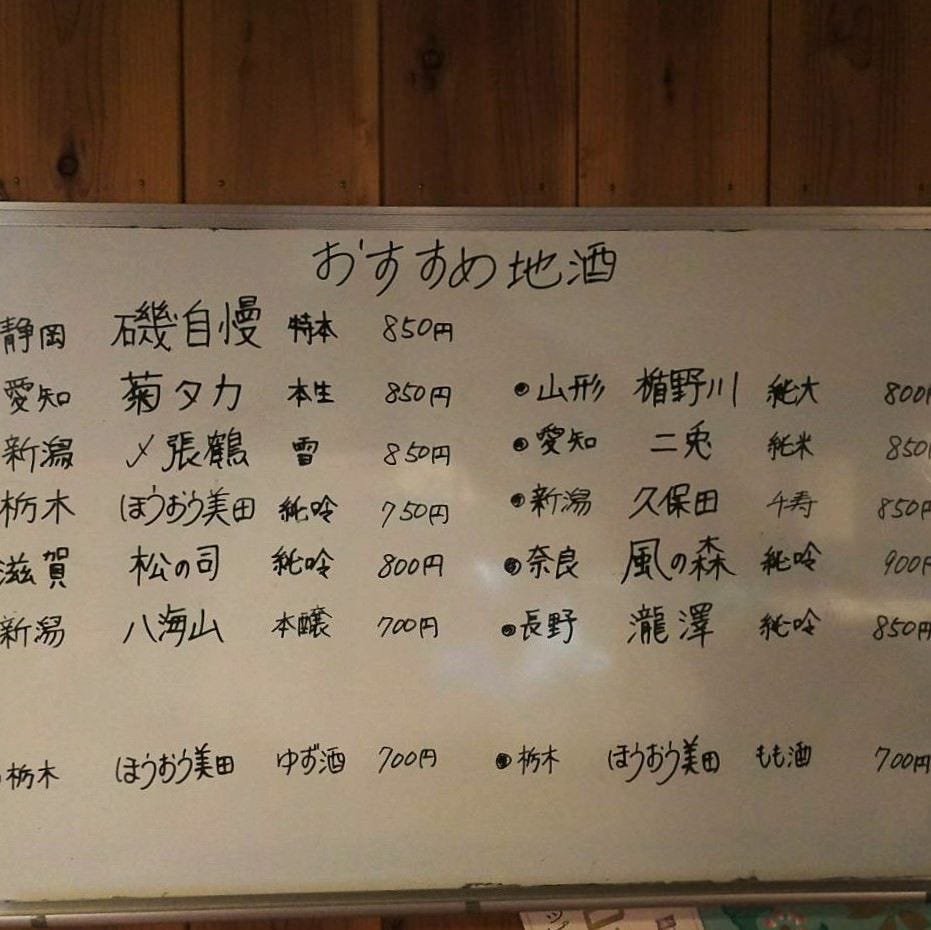 おすすめ地酒
静岡 磯自慢 特本 850円
愛知 菊タカ 本生 850円 ●山形 楯野川 純大 800円
新潟 〆張鶴 雪 850円 ●愛知 二兎 純米 850
栃木 ほうおう美田 純吟 750円 ●新潟 久保田 千寿 850円
滋賀 松の司 純吟 800円 ●奈良 風の森 純吟 900円
新潟 八海山 本醸 700円 ●長野 瀧澤 純吟 850円
●栃木 ほうおう美田 ゆず酒 700円 ●栃木 ほうおう美田 もも酒 700円